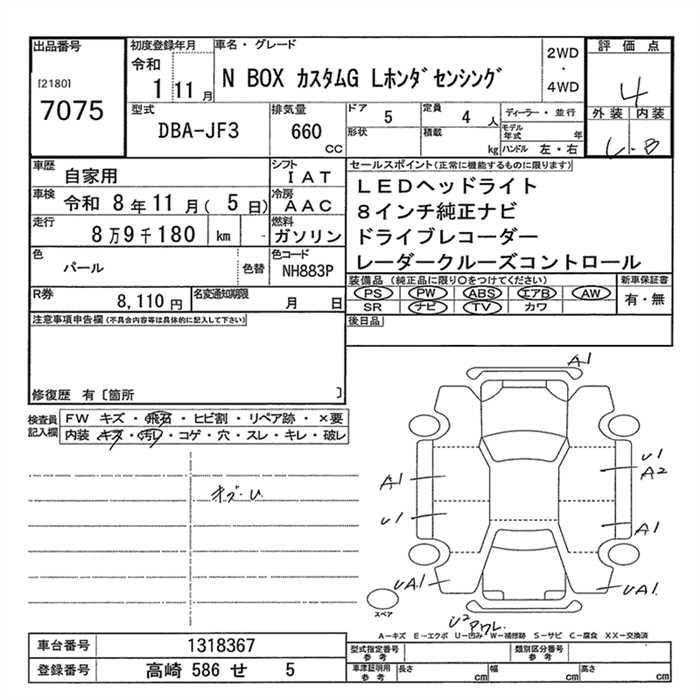 出品番号
[2180]
7075
初度登録年月
令和
1 11 月
車名・グレード
N BOX カスタムG Lホンダセンシング
2WD
・
4WD
評価点
4
外装 内装
B
型式
DBA-JF3
排気量
660
cc
ドア 5
定員 4 人
形状
積載 kg
ディーラー・並行
モデル年式 年
ハンドル 左・右
車歴 自家用
シフト IAT
車検 令和 8 年 11 月( 5 日)
冷房 AAC
走行 8万9千180 km
燃料 ガソリン
色 パール
色替
色コード NH883P
R券 8,110 円
名変通知期限 月 日
セールスポイント(正常に機能するものに限ります)
LEDヘッドライト
8インチ純正ナビ
ドライブレコーダー
レーダークルーズコントロール
装備品(純正品に限り○をつけてください)
PS PW ABS エアB AW
SR ナビ TV カワ
新車保証書
有・無
後日品
注意事項申告欄(不具合内容等は具体的に記入して下さい)
修復歴 有〔箇所 〕
検査員記入欄
FW キズ・飛石・ヒビ割・リペア跡・×要
内装 キズ・汚レ・コゲ・穴・スレ・キレ・破レ
A1
U1
A2
A1
U1
A1
UA1
UA1
U2
スペア
A－キズ E－エクボ U－凹み W－補修跡 S－サビ C－腐食 XX－交換済
車台番号 1318367
登録番号 高崎 586 せ 5
型式指定番号 参考
類別区分番号 参考
車庫証明用 参考
長さ cm
幅 cm
高さ cm